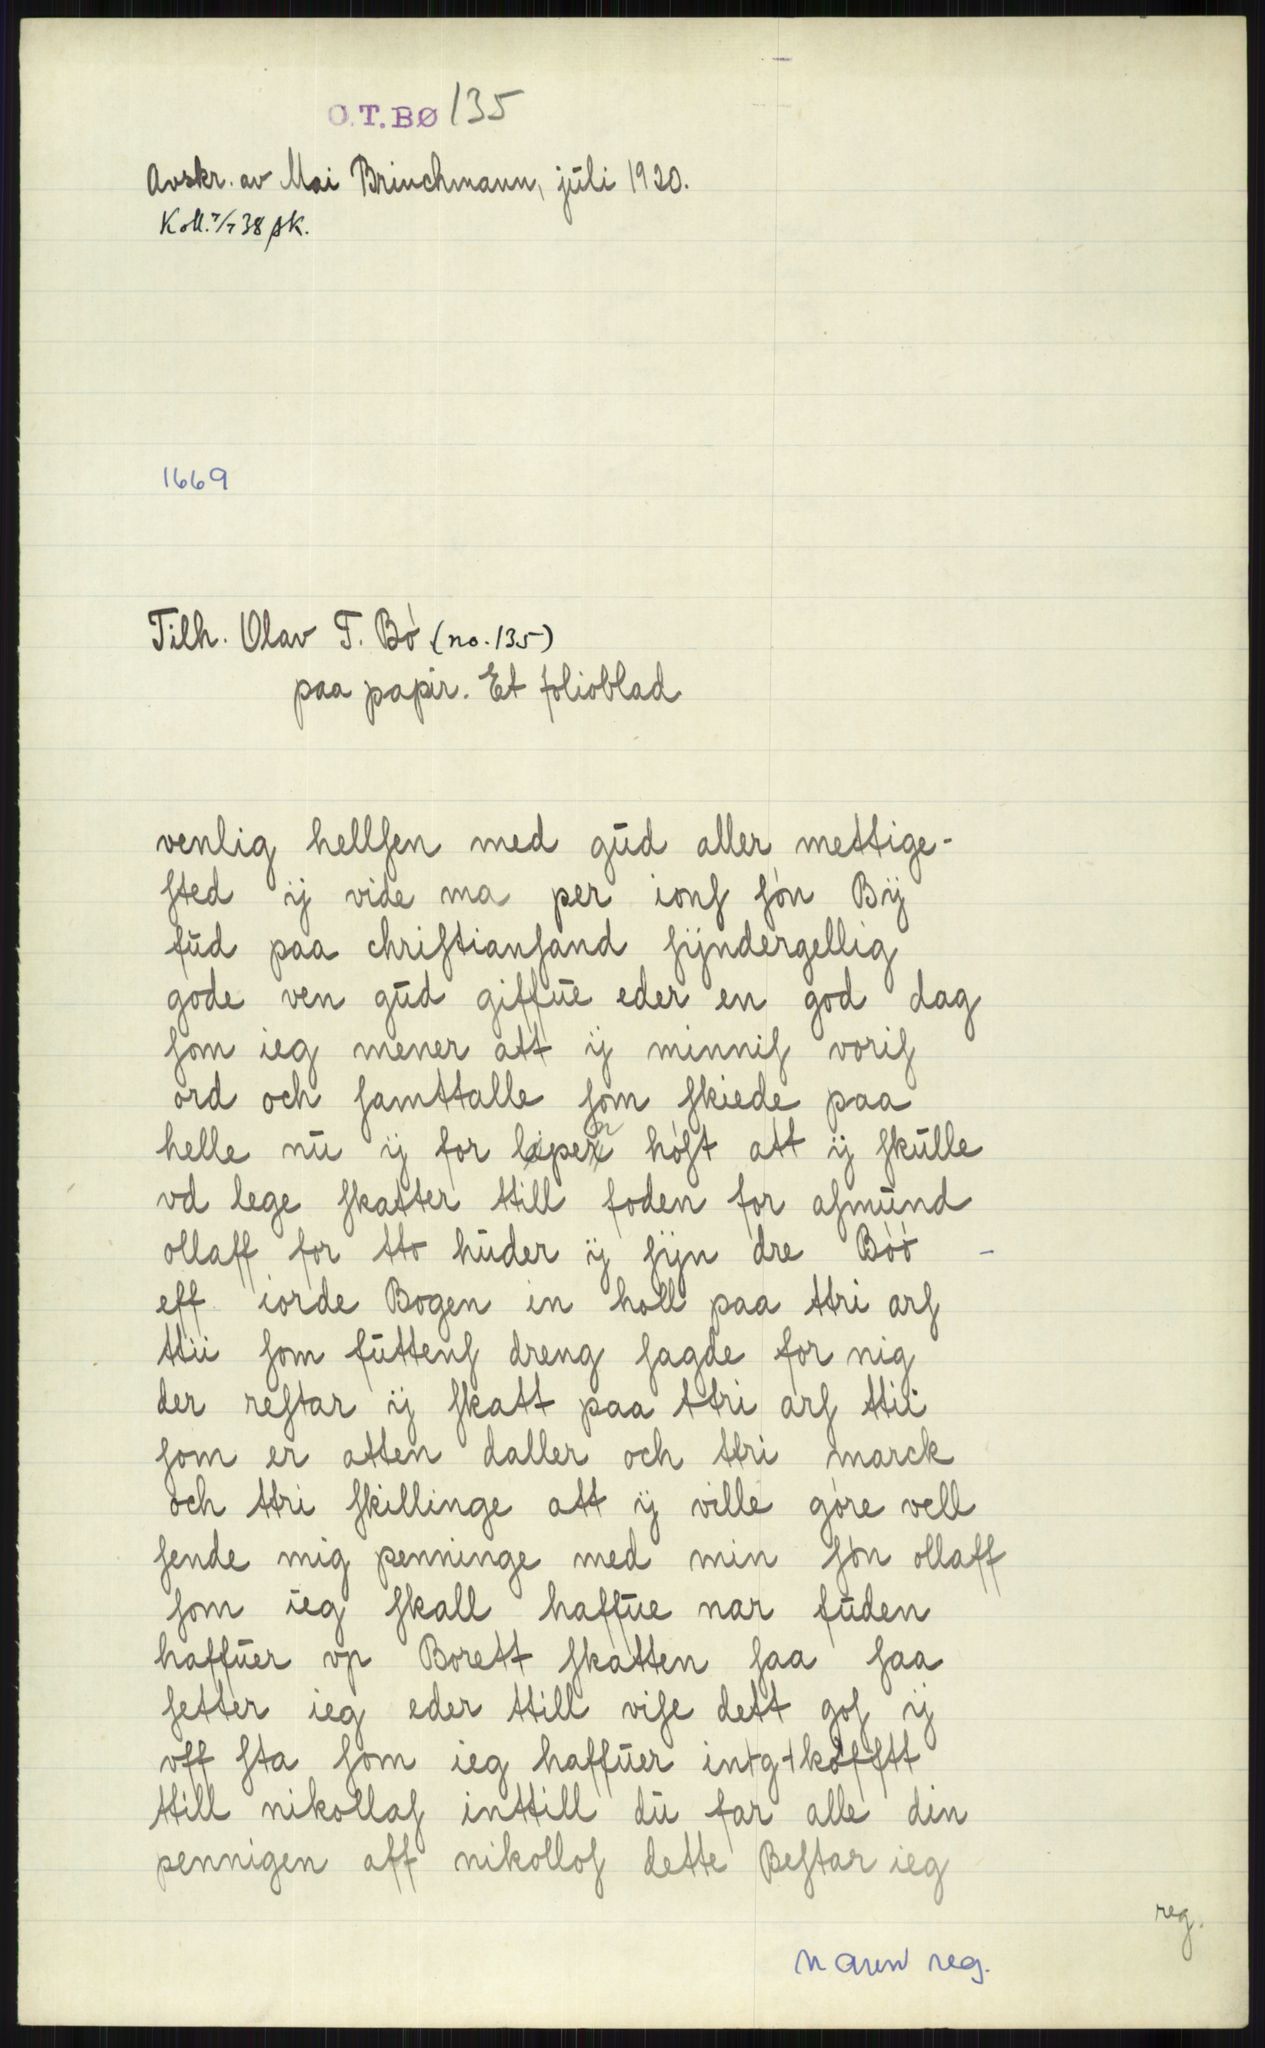 O.T.BØ 135
Avskr. av Mai Brinchmann, juli 1920.
Koll. 7/7 38 AK.
1669
Tilh. Olav T. Bø (no. 135)
paa papir. Et folioblad
venlig hellſen med gud aller mettige-
ſted ij vide ma per ionſ ſøn Bÿ
fud paa chriſtianſand ſÿndergellig
gode ven gud giffue eder en god dag
ſom ieg mener att ij minniſ voriſ
ord och ſamttalle ſom ſkiede paa
helle nu ij for høſt att ij ſkulle
vd lege ſkatter ttill foden for aſmund
ollaff for tto huder ij ſijn dre Bøø
eff iorde Bogen in holl paa ttri arſ
ttii ſom futtenſ dreng ſagde for nig
der reſtar ij ſkatt paa ttri arſ ttii
ſom er atten daller och ttri marck
och ttri ſkillinge att ij ville gøre vell
ſende mig penninge med min ſøn ollaff
ſom ieg ſkall haffue nar fuden
haffuer vp Borett ſkatten ſaa ſaa
ſetter ieg eder ttill viſe dett goſ ij
off ſta ſom ieg haffuer
ttill nikollaſ inttill du far alle din
pennigen aff nikolloſ dette Beſtar ieg
reg.
navn reg.